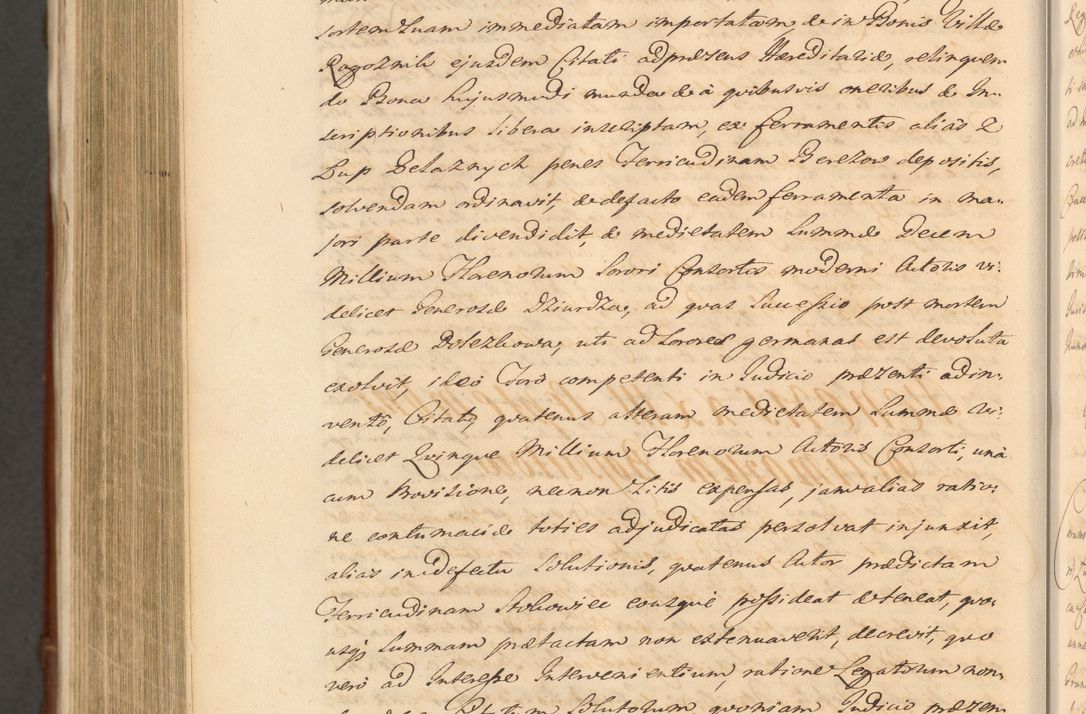 sortem suam immediatam importatam, de in Bonis Villæ
Rogoznik ejusdem Citati ad præsens Hæreditariæ, relinquen
do Bona hujusmodi munda de à quibusvis oneribus & In-
scriptionibus libera inscriptam, ex ferramentis alias z
Dup Zelaznych penes Ferricudinam Berezow depositis,
solvendam ordinavit, de defacto eadem ferramenta in ma-
jori parte divendidit, & medietatem Summæ Decem
Millium Florenorum Sorori Consortis moderni Actoris vi-
delicet Generosæ Dziurdza, ad quas Successio post mortem
Generosæ Bolezkowa, uti ad Sorores germanas est devoluta
exolvit, ideò Foro competenti in Judicio præsenti adin-
ventô, Citatq quatenus alteram medietatem Summæ vi-
delicet Quinque Millium Florenorum Actoris Consorti, unà
cum Provisione, necnon Litis expensas, jam alias ratio-
ne contumaciæ toties adjudicatas persolvat injunxit,
alias in defectu Solutionis, quatenus Actor prædictam
Ferricudinam Stokowiec eousque possideat & teneat, quo-
usq; Summam prætactam non extenuaverit, decrevit, quo
verò ad Interesse Intervenientium, ratione Legatorum non-
Solutorum quoniam Judicio præsen